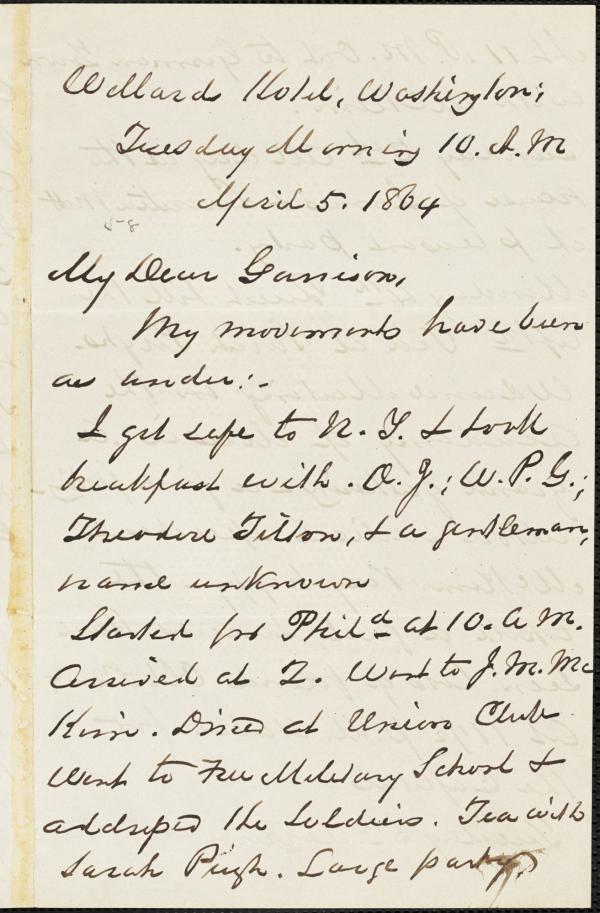 Willards Hotel, Washington;
Tuesday Morning 10. A. M
April 5. 1864
5-8
My Dear Garrison,
My movements have been
as under:-
I got safe to N. Y. & took
breakfast with. O. J.; W. P. G.;
Theodore Tilton, & a gentleman,
name unknown
Started for Phila at 10. A M.
Arrived at 2. Went to J. M. Mc
Kim. Dined at Union Club
Went to Free Military School &
addressed the Soldiers. Tea with
Sarah Pugh. Large party